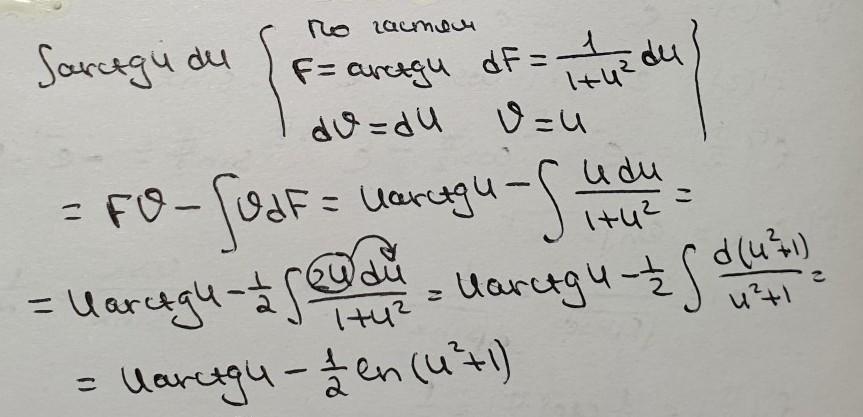 по частям
∫arctgu du { F = arctgu dF = 1/(1+u²) du
dϑ = du ϑ = u }
= Fϑ - ∫ϑdF = uarctgu - ∫ u du/(1+u²) =
= uarctgu - 1/2 ∫ 2u du/(1+u²) = uarctgu - 1/2 ∫ d(u²+1)/(u²+1) =
= uarctgu - 1/2 ln(u²+1)